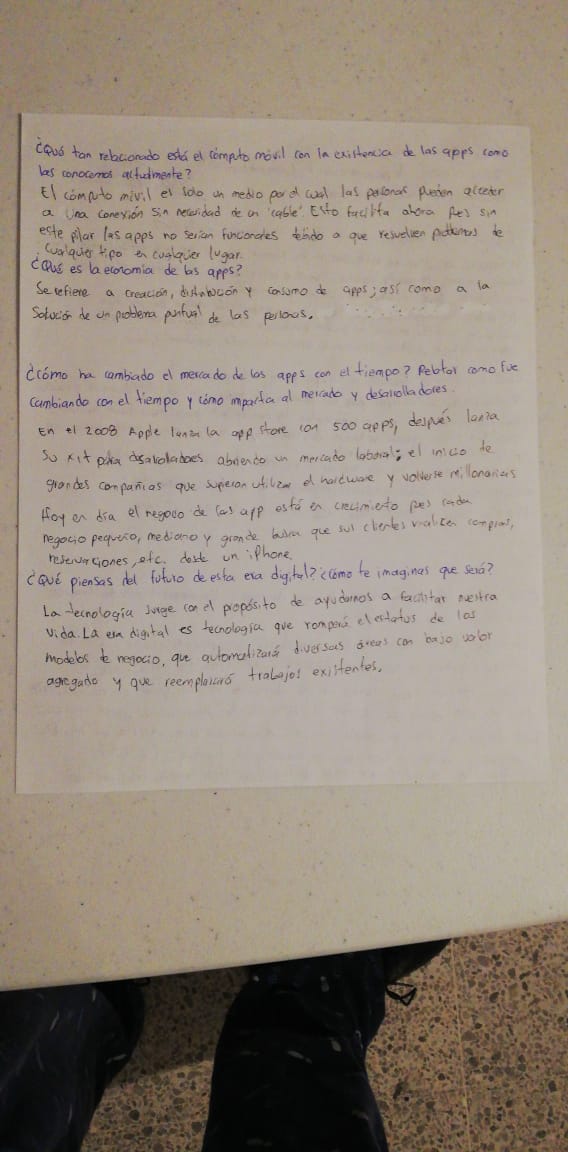 ¿Qué tan relacionado está el cómputo móvil con la existencia de las apps como
las conocemos actualmente?
El cómputo móvil es solo un medio por el cual las personas pueden acceder
a una conexión sin necesidad de un 'cable'. Esto facilita ahora pes sin
este pilar las apps no serían funcionales debido a que resuelven problemas de
cualquier tipo en cualquier lugar.
¿Qué es la economía de las apps?
Se refiere a creación, distribución y consumo de apps; así como a la
solución de un problema puntual de las personas.
¿Cómo ha cambiado el mercado de las apps con el tiempo? Relatar como fue
cambiando con el tiempo y cómo impacta al mercado y desarrolladores.
En el 2008 Apple lanza la app store con 500 apps, después lanza
su kit para desarrolladores abriendo un mercado laboral; el inicio de
grandes compañías que supieron utilizar el hardware y volverse millonarias
Hoy en día el negocio de las app está en crecimiento pes cada
negocio pequeño, mediano y grande busca que sus clientes realicen compras,
reservaciones, etc. desde un iPhone.
¿Qué piensas del futuro de esta era digital? ¿Cómo te imaginas que será?
La tecnología surge con el propósito de ayudarnos a facilitar nuestra
vida. La era digital es tecnología que romperá el estatus de los
modelos de negocio, que automatizará diversas áreas con bajo valor
agregado y que reemplazará trabajos existentes.